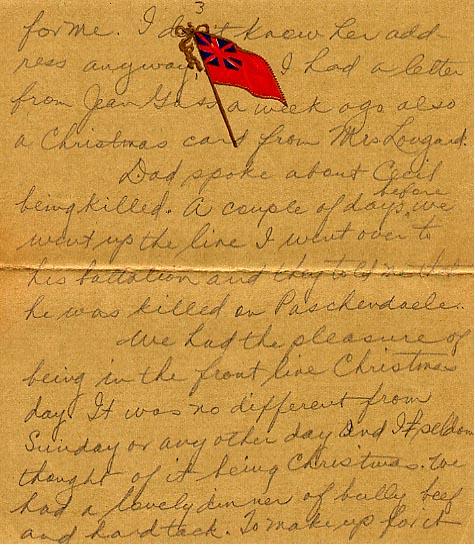 3
for me. I don't know her add-
ress anyway. I had a letter
from Jean Gass a week ago also
a Christmas card from Mrs Lougard.
Dad spoke about Cecil
being killed. A couple of days before we
went up the line I went over to
his battalion and they told me that
he was killed on Paschendaele.
We had the pleasure of
being in the front line Christmas
day. It was no different from
Sunday or any other day and I seldom
thought of it being Christmas. We
had a lovely dinner of bully beef
and hard tack. To make up for it